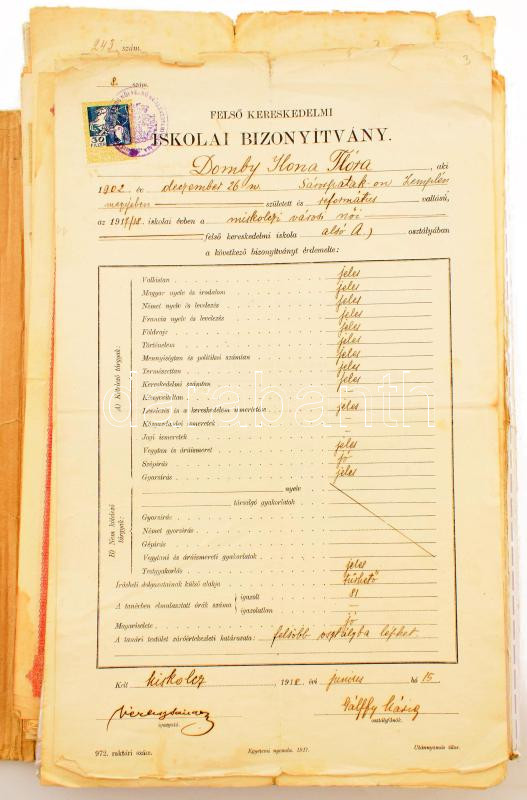 243 szám.
3
8. szám.
30
FILLÉR
FELSŐ KERESKEDELMI
ISKOLAI BIZONYÍTVÁNY.
Domby Ilona Flóra, aki
1902 év deczember 26-n Sárospatak-on Zemplén
megyében született és református vallású,
az 1917/18. iskolai évben a miskolczi városi női
felső kereskedelmi iskola alsó A.) osztályában
a következő bizonyítványt érdemelte:
A) Kötelező tárgyak:
Vallástan jeles
Magyar nyelv és irodalom jeles
Német nyelv és levelezés jeles
Francia nyelv és levelezés jeles
Földrajz jeles
Történelem jeles
Mennyiségtan és politikai számtan jeles
Természettan jeles
Kereskedelmi számtan jeles
Könyvviteltan –
Levelezés és a kereskedelem ismertetése jeles
Közgazdasági ismeretek –
Jogi ismeretek –
Vegytan és áruismeret jeles
Szépírás jó
Gyorsírás jeles
B) Nem kötelező tárgyak:
nyelv
társalgó gyakorlatok
Gyorsírás
Német gyorsírás
Gépírás
Vegytani és áruismereti gyakorlatok
Testgyakorlás jeles
Írásbeli dolgozatainak külső alakja tűrhető
A tanévben elmulasztott órák száma igazolt 81
igazolatlan –
Magaviselete jó
A tanári testület záróértekezleti határozata: felsőbb osztályba léphet
Kelt Miskolcz 1918 évi junius hó 15
igazgató.
Pálffy Mária
osztályfőnök.
972. raktári szám. Egyetemi nyomda. 1917. Utánnyomás tilos.
darabanth